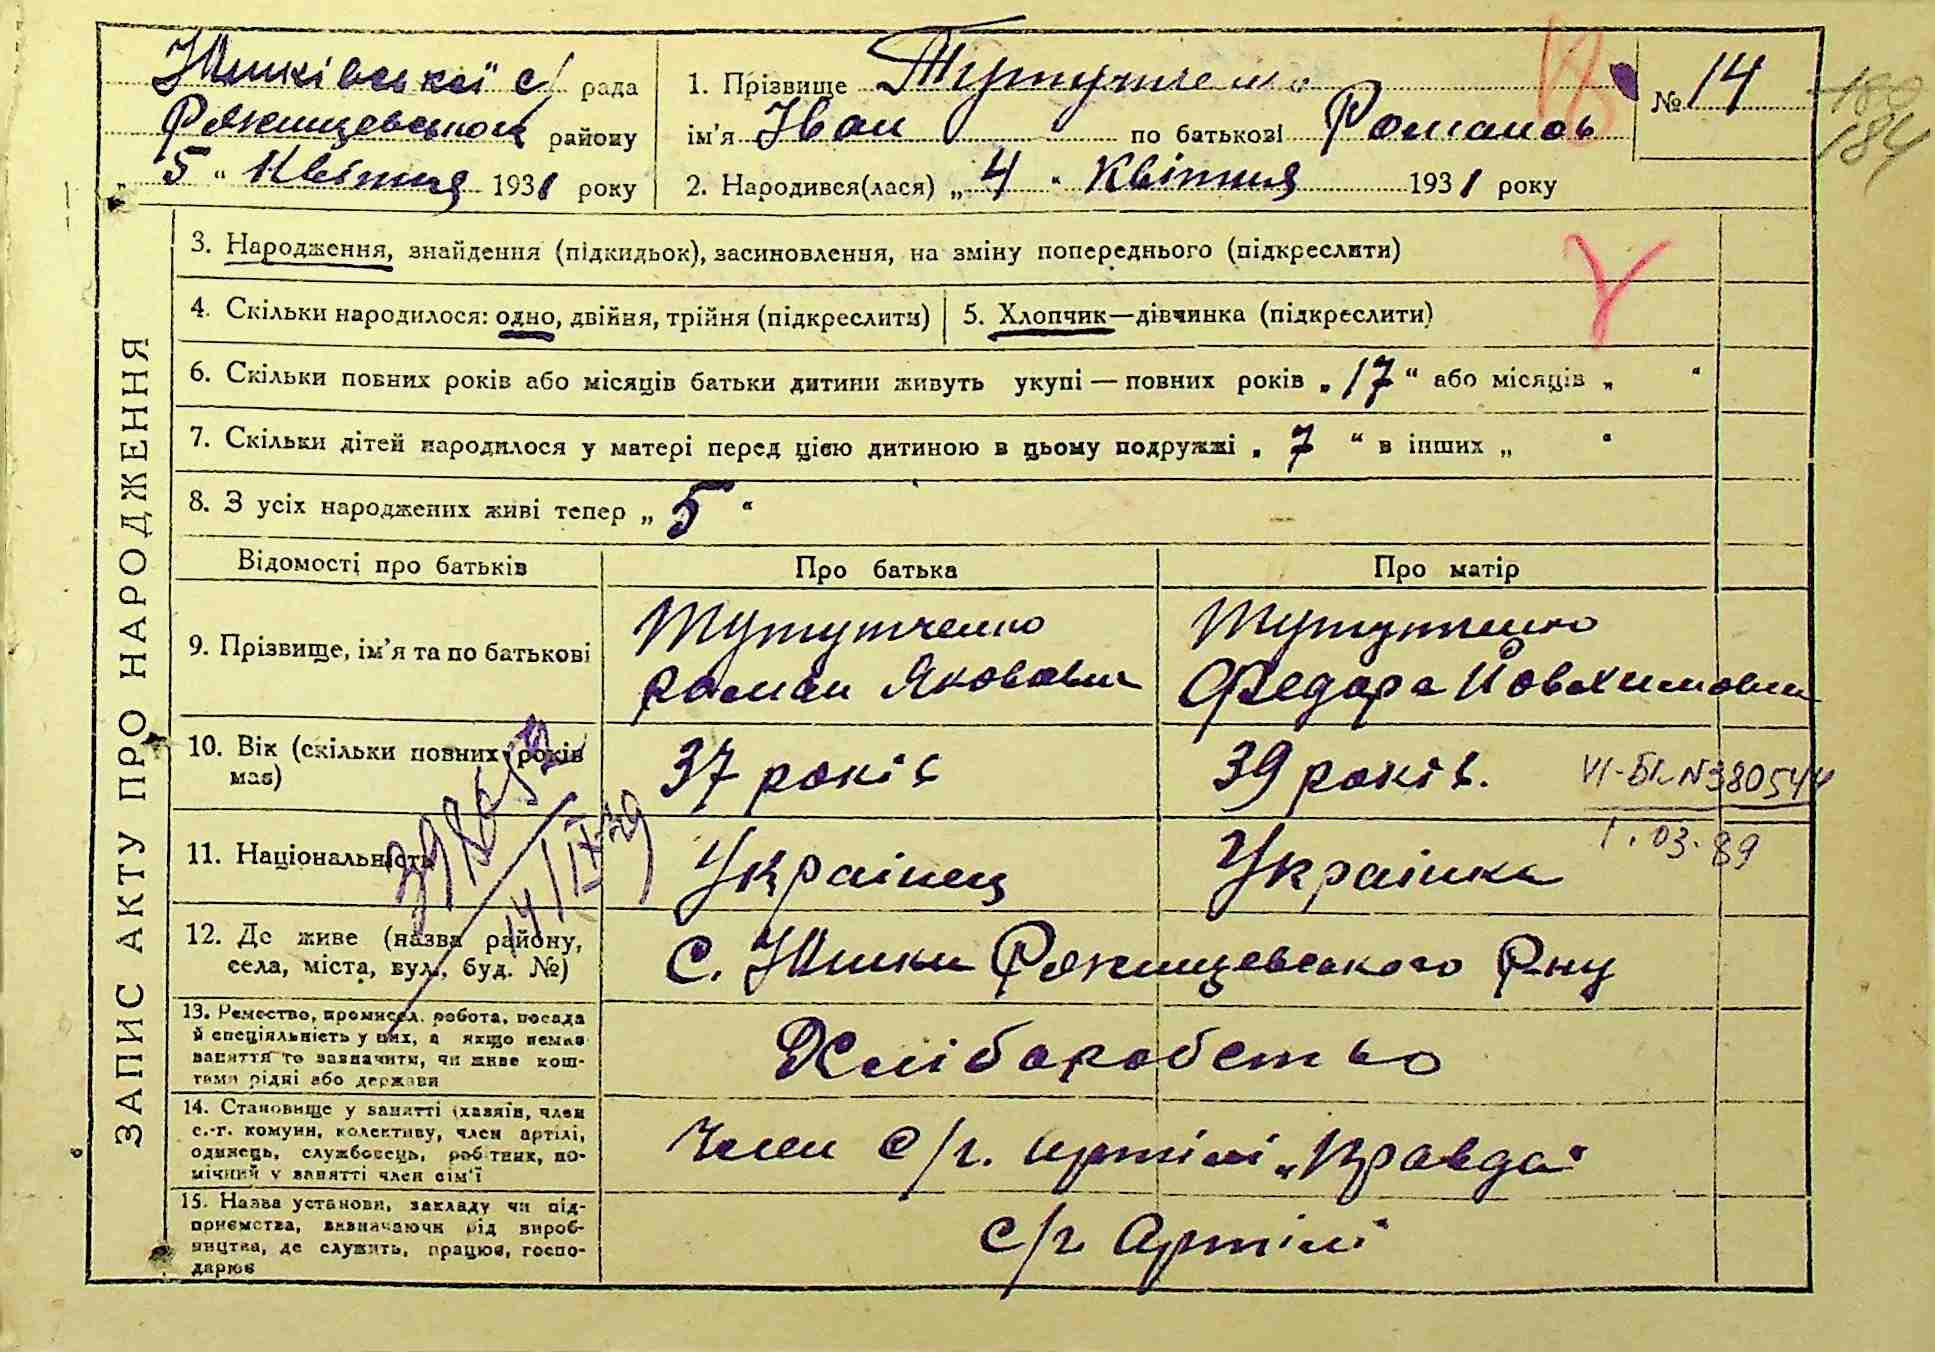 Юшківської с/ рада
Ржищевського району
"5" Квітня 1931 року
1. Прізвище Тутутченко
ім'я Іван по батькові Романов
2. Народився(лася) „4" Квітня 1931 року
№ 14
180
184
ЗАПИС АКТУ ПРО НАРОДЖЕННЯ
3. Народження, знайдення (підкидьок), засиновлення, на зміну попереднього (підкреслити)
4. Скільки народилося: одно, двійня, трійня (підкреслити)
5. Хлопчик—дівчинка (підкреслити)
6. Скільки повних років або місяців батьки дитини живуть укупі — повних років „17" або місяців „ "
7. Скільки дітей народилося у матері перед цією дитиною в цьому подружжі „7" в інших „ "
8. З усіх народжених живі тепер „5"
Відомості про батьків
Про батька
Про матір
9. Прізвище, ім'я та по батькові
Тутутченко
Роман Яковович
Тутутченко
Федора Йовхимовна
10. Вік (скільки повних років
має)
37 років
39 років.
VI-БК N380544
1.03.89
11. Національність
Українец
Українка
14/IX-39
12. Де живе (назва району,
села, міста, вул., буд. №)
С. Юшки Ржищевського Р-ну
13. Ремество, промисел. робота, посада
й спеціяльність у них, а якщо немає
заняття то зазначити, чи живе кош-
тами рідні або держави
Хліборобство
14. Становище у занятті (хазяїн, член
с.-г. комуни, колективу, член артілі,
одинець, службовець, робітник, по-
мічний у занятті член сім'ї
Член с/г. артілі „Правда"
15. Назва установи, закладу чи під-
приємства, визначаючи рід вироб-
ництва, де служить, працює, госпо-
дарює
с/г. Артілі